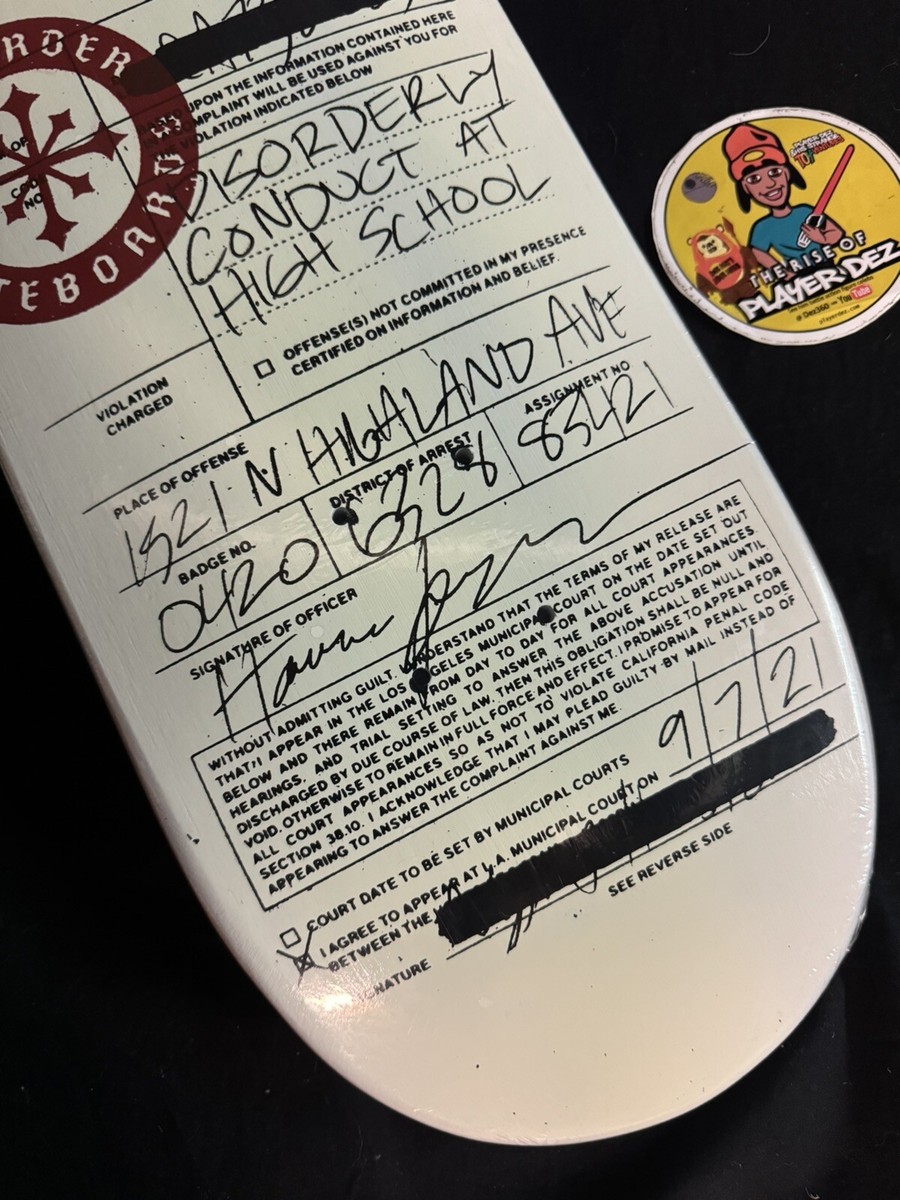 RDER
TEBOARDS
UPON THE INFORMATION CONTAINED HERE
COMPLAINT WILL BE USED AGAINST YOU FOR
VIOLATION INDICATED BELOW
DISORDERLY
CONDUCT AT
HIGH SCHOOL
OFFENSE(S) NOT COMMITTED IN MY PRESENCE
CERTIFIED ON INFORMATION AND BELIEF.
VIOLATION
CHARGED
PLACE OF OFFENSE
1521 N HIGHLAND AVE
BADGE NO.
DISTRICT OF ARREST
ASSIGNMENT NO
0420
6328
83421
SIGNATURE OF OFFICER
WITHOUT ADMITTING GUILT. I UNDERSTAND THAT THE TERMS OF MY RELEASE ARE
THAT: I APPEAR IN THE LOS ANGELES MUNICIPAL COURT ON THE DATE SET OUT
BELOW AND THERE REMAIN FROM DAY TO DAY FOR ALL COURT APPEARANCES.
HEARINGS, AND TRIAL SETTING TO ANSWER THE ABOVE ACCUSATION UNTIL
DISCHARGED BY DUE COURSE OF LAW. THEN THIS OBLIGATION SHALL BE NULL AND
VOID. OTHERWISE TO REMAIN IN FULL FORCE AND EFFECT. I PROMISE TO APPEAR FOR
ALL COURT APPEARANCES SO AS NOT TO VIOLATE CALIFORNIA PENAL CODE
SECTION 38.10. I ACKNOWLEDGE THAT I MAY PLEAD GUILTY BY MAIL INSTEAD OF
APPEARING TO ANSWER THE COMPLAINT AGAINST ME.
COURT DATE TO BE SET BY MUNICIPAL COURTS
I AGREE TO APPEAR AT L.A. MUNICIPAL COURT ON 9/7/21
BETWEEN THE
SIGNATURE
SEE REVERSE SIDE
THE RISE OF
PLAYER DEZ
YouTube
playerdez.com